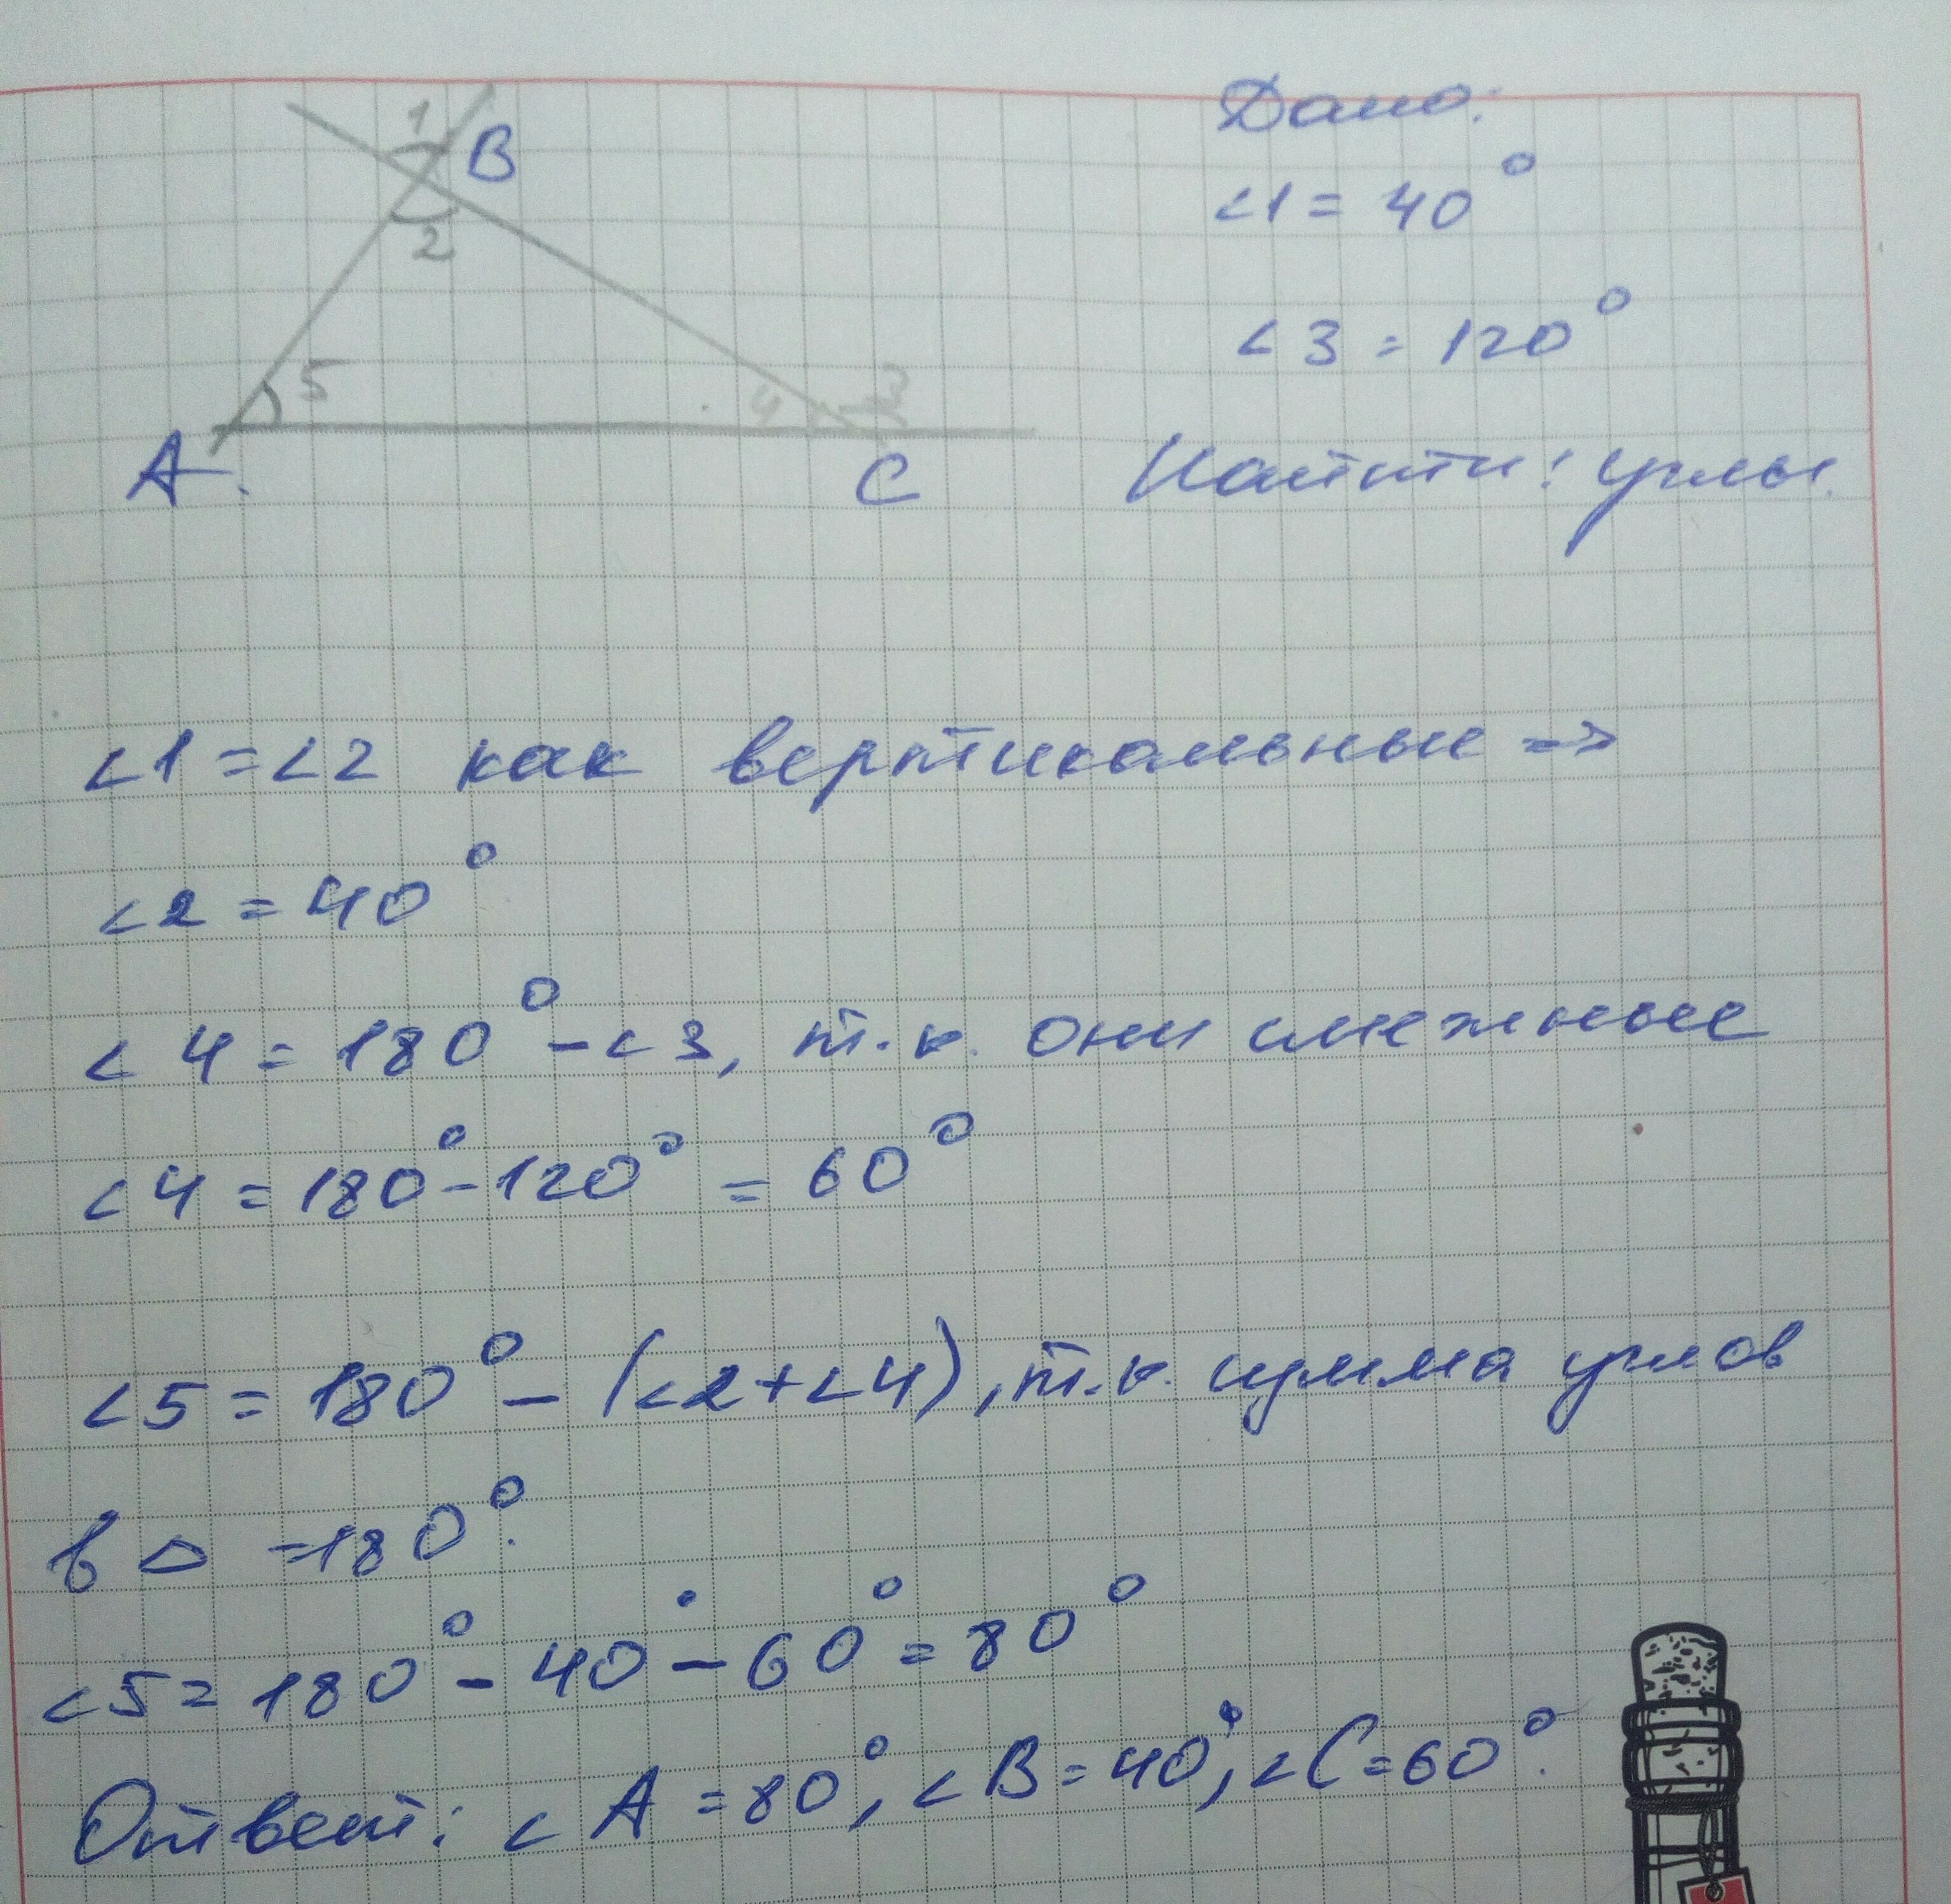 1
B
2
5
4
3
A.
C
Дано:
∠1 = 40°
∠3 = 120°
Найти: углы.
∠1 = ∠2 как вертикальные =>
∠2 = 40°
∠4 = 180° - ∠3, т.к. они смежные
∠4 = 180° - 120° = 60°
∠5 = 180° - (∠2 + ∠4), т.к. сумма углов
в △ = 180°.
∠5 = 180° - 40° - 60° = 80°
Ответ: ∠A = 80°, ∠B = 40°, ∠C = 60°.